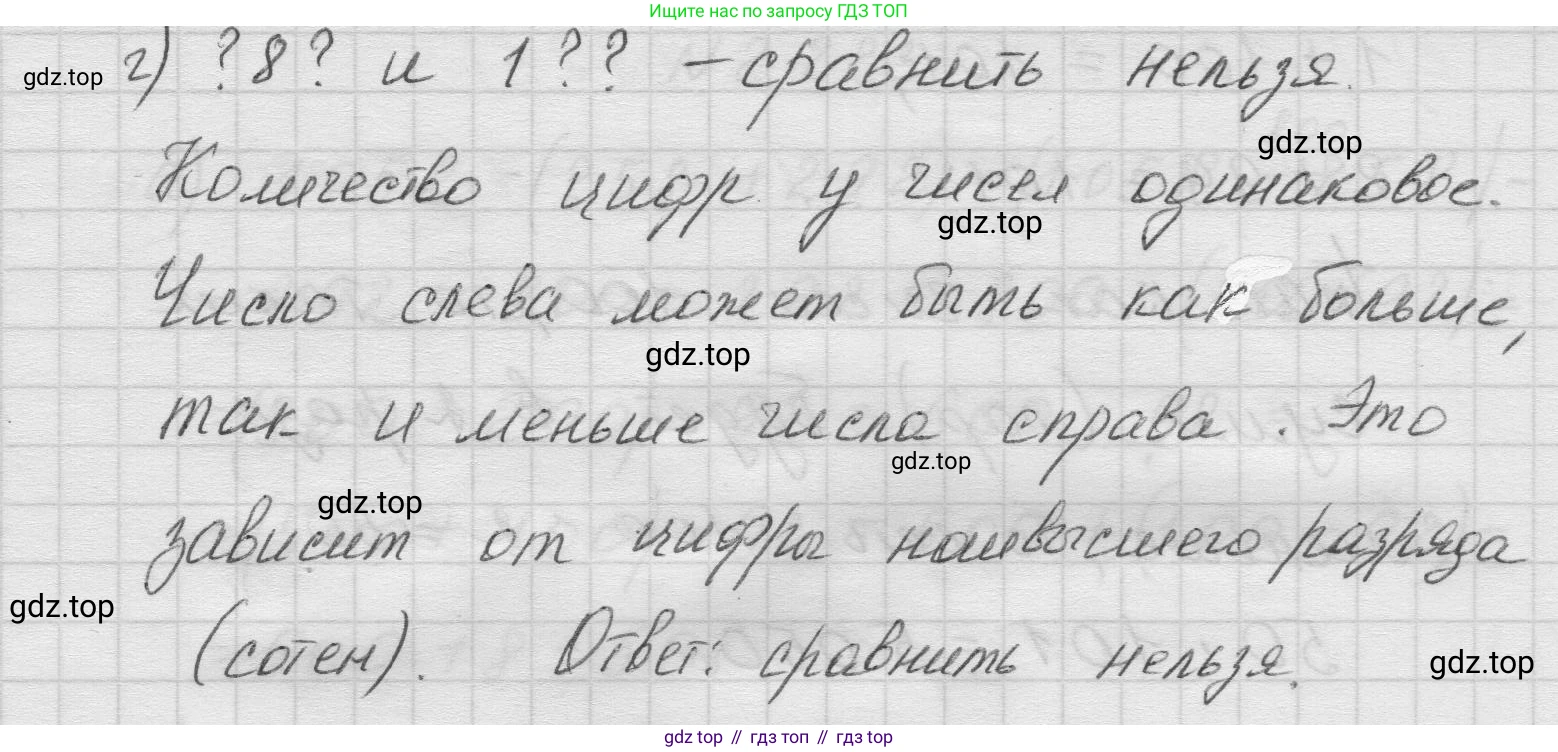 Ищите нас по запросу ГДЗ ТОП
gdz.top г) ?8? и 1?? – сравнить нельзя.
gdz.top
Количество цифр у чисел одинаковое.
gdz.top
Число слева может быть как больше,
gdz.top
так и меньше числа справа. Это
gdz.top
gdz.top
зависит от цифры наивысшего разряда
gdz.top
(сотен). Ответ: сравнить нельзя.
gdz.top
gdz top // гдз топ // гдз top